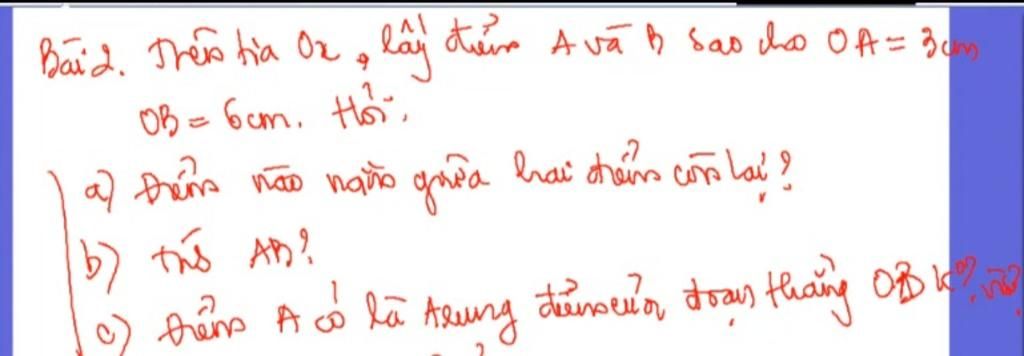 Bài 2. Trên tia Ox, lấy điểm A và B sao cho OA = 3cm
OB = 6cm. Hỏi:
a) Điểm nào nằm giữa hai điểm còn lại?
b) Tính AB?
c) Điểm A có là trung điểm của đoạn thẳng OB k°? vì?